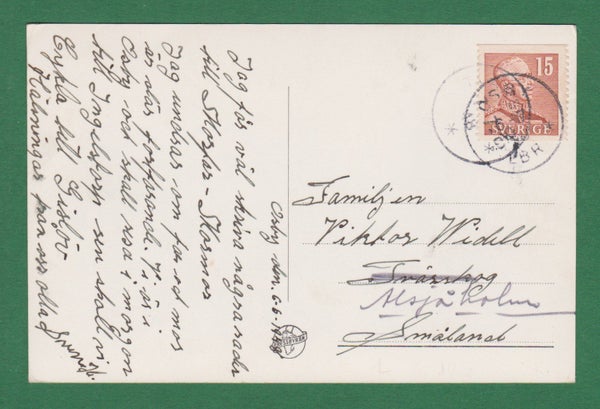 Osby den. 6-6-1943
Jag får väl skriva några rader
till Skogfar-Skogmor
Jag undrar om far och mor
är där fortfarande. Vi är i
Osby och skall resa i morgon
till Ingelstorp sen skall vi
cykla till Gislöv
Hälsningar från oss alla
15
SVERIGE
OSBY
LBR
Familjen
Viktor Widell
Svänshog
Alsjöholm
Småland